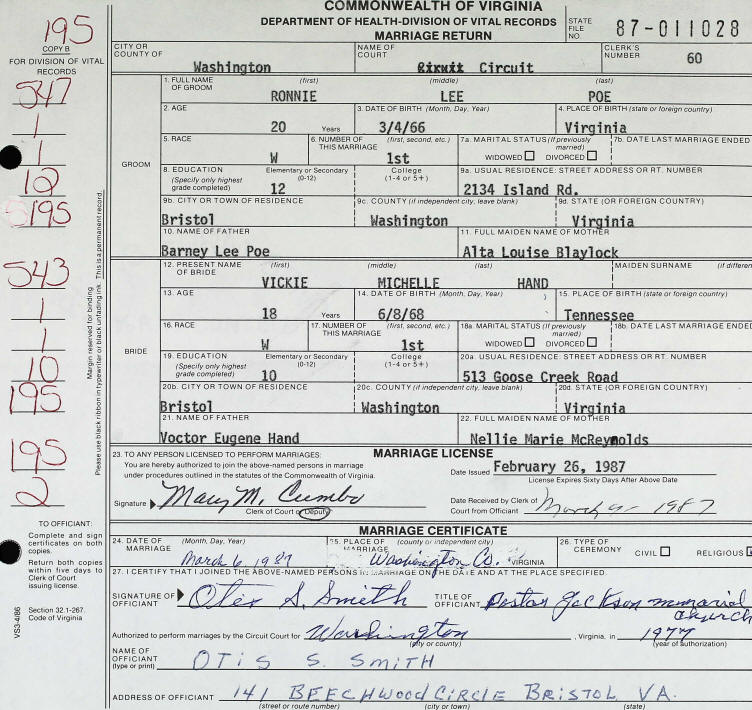 COMMONWEALTH OF VIRGINIA
DEPARTMENT OF HEALTH-DIVISION OF VITAL RECORDS
MARRIAGE RETURN
STATE FILE NO. 87-011028
195
COPY B
FOR DIVISION OF VITAL RECORDS
CITY OR COUNTY OF Washington
NAME OF COURT Circuit Circuit
CLERK'S NUMBER 60
547
1
1
12
195
543
1
1
10
195
195
2
Margin reserved for binding
Please use black ribbon in typewriter or black unfading ink. This is a permanent record.
GROOM
1. FULL NAME OF GROOM (first) (middle) (last)
RONNIE LEE POE
2. AGE 20 Years
3. DATE OF BIRTH (Month, Day, Year) 3/4/66
4. PLACE OF BIRTH (state or foreign country) Virginia
5. RACE W
6. NUMBER OF THIS MARRIAGE (first, second, etc.) 1st
7a. MARITAL STATUS (If previously married) WIDOWED DIVORCED
7b. DATE LAST MARRIAGE ENDED
8. EDUCATION (Specify only highest grade completed) Elementary or Secondary (0-12) 12 College (1-4 or 5+)
9a. USUAL RESIDENCE: STREET ADDRESS OR RT. NUMBER 2134 Island Rd.
9b. CITY OR TOWN OF RESIDENCE Bristol
9c. COUNTY (if independent city, leave blank) Washington
9d. STATE (OR FOREIGN COUNTRY) Virginia
10. NAME OF FATHER Barney Lee Poe
11. FULL MAIDEN NAME OF MOTHER Alta Louise Blaylock
BRIDE
12. PRESENT NAME OF BRIDE (first) (middle) (last) MAIDEN SURNAME (if differen
VICKIE MICHELLE HAND
13. AGE 18 Years
14. DATE OF BIRTH (Month, Day, Year) 6/8/68
15. PLACE OF BIRTH (state or foreign country) Tennessee
16. RACE W
17. NUMBER OF THIS MARRIAGE (first, second, etc.) 1st
18a. MARITAL STATUS (If previously married) WIDOWED DIVORCED
18b. DATE LAST MARRIAGE ENDED
19. EDUCATION (Specify only highest grade completed) Elementary or Secondary (0-12) 10 College (1-4 or 5+)
20a. USUAL RESIDENCE: STREET ADDRESS OR RT. NUMBER 513 Goose Creek Road
20b. CITY OR TOWN OF RESIDENCE Bristol
20c. COUNTY (if independent city, leave blank) Washington
20d. STATE (OR FOREIGN COUNTRY) Virginia
21. NAME OF FATHER Voctor Eugene Hand
22. FULL MAIDEN NAME OF MOTHER Nellie Marie McReynolds
23. TO ANY PERSON LICENSED TO PERFORM MARRIAGES: MARRIAGE LICENSE
You are hereby authorized to join the above-named persons in marriage
under procedures outlined in the statutes of the Commonwealth of Virginia.
Date Issued February 26, 1987
License Expires Sixty Days After Above Date
Signature Mary M. Cumbo
Clerk of Court or Deputy
Date Received by Clerk of Court from Officiant March 9 - 1987
TO OFFICIANT:
Complete and sign certificates on both copies.
Return both copies within five days to Clerk of Court issuing license.
Section 32.1-267. Code of Virginia
VS3-4/86
MARRIAGE CERTIFICATE
24. DATE OF MARRIAGE (Month, Day, Year) March 6, 1987
25. PLACE OF MARRIAGE (county or independent city) Washington Co. VIRGINIA
26. TYPE OF CEREMONY CIVIL RELIGIOUS
27. I CERTIFY THAT I JOINED THE ABOVE-NAMED PERSONS IN MARRIAGE ON THE DATE AND AT THE PLACE SPECIFIED.
SIGNATURE OF OFFICIANT Otis S. Smith
TITLE OF OFFICIANT Pastor Jackson memorial church
Authorized to perform marriages by the Circuit Court for Washington , Virginia, in 1977
(city or county) (year of authorization)
NAME OF OFFICIANT (type or print) OTIS S. SMITH
ADDRESS OF OFFICIANT 141 BEECHWOOD CIRCLE BRISTOL VA.
(street or route number) (city or town) (state)